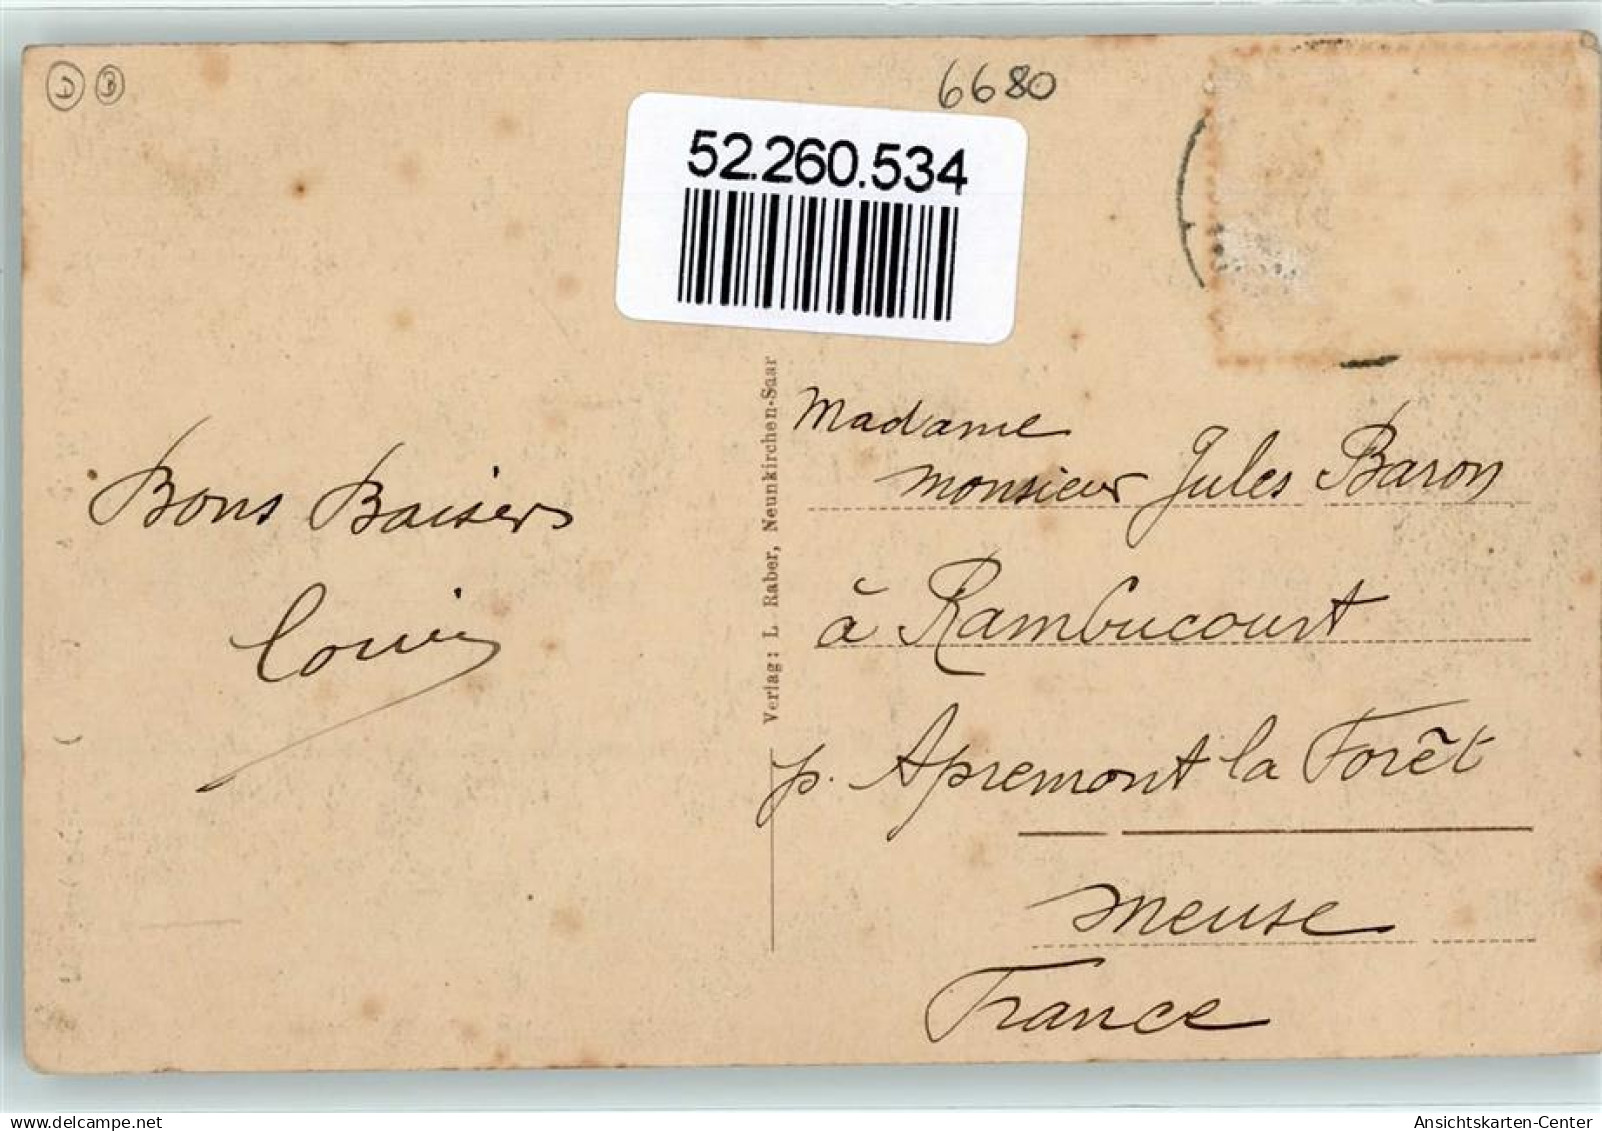 D B
6680
52.260.534
Bons Baisers
Louis
Verlag: L. Raber, Neunkirchen-Saar
Madame
monsieur Jules Baron
à Rambucourt
p. Apremont la Forêt
Meuse
France
delcampe.net
the_postcard
Ansichtskarten-Center